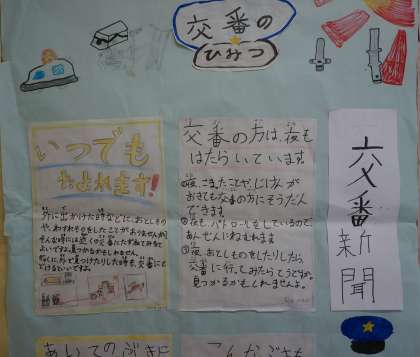 交番の
ひみつ
交番新聞
交番の方は、夜も
はたらいています
①夜、こまったことや、じけんが
おきても交番の方にそうだん
できます
②夜も、パトロールをしているので、
あんぜんにねむれます
③夜、おとしものをしたりしたら
交番に行ってみたらどうですか。
見つかるかもしれません。
いつでも
たよれます!
外に出かけた時などに、おとしもの
や、わすれものをしたことがありませんか。
そんな時には近くの交番にたずねてみると
よいですよ。見つかるかもしれません。
とどけるといいですよ。
こんなぶきも
あいてのぶきに